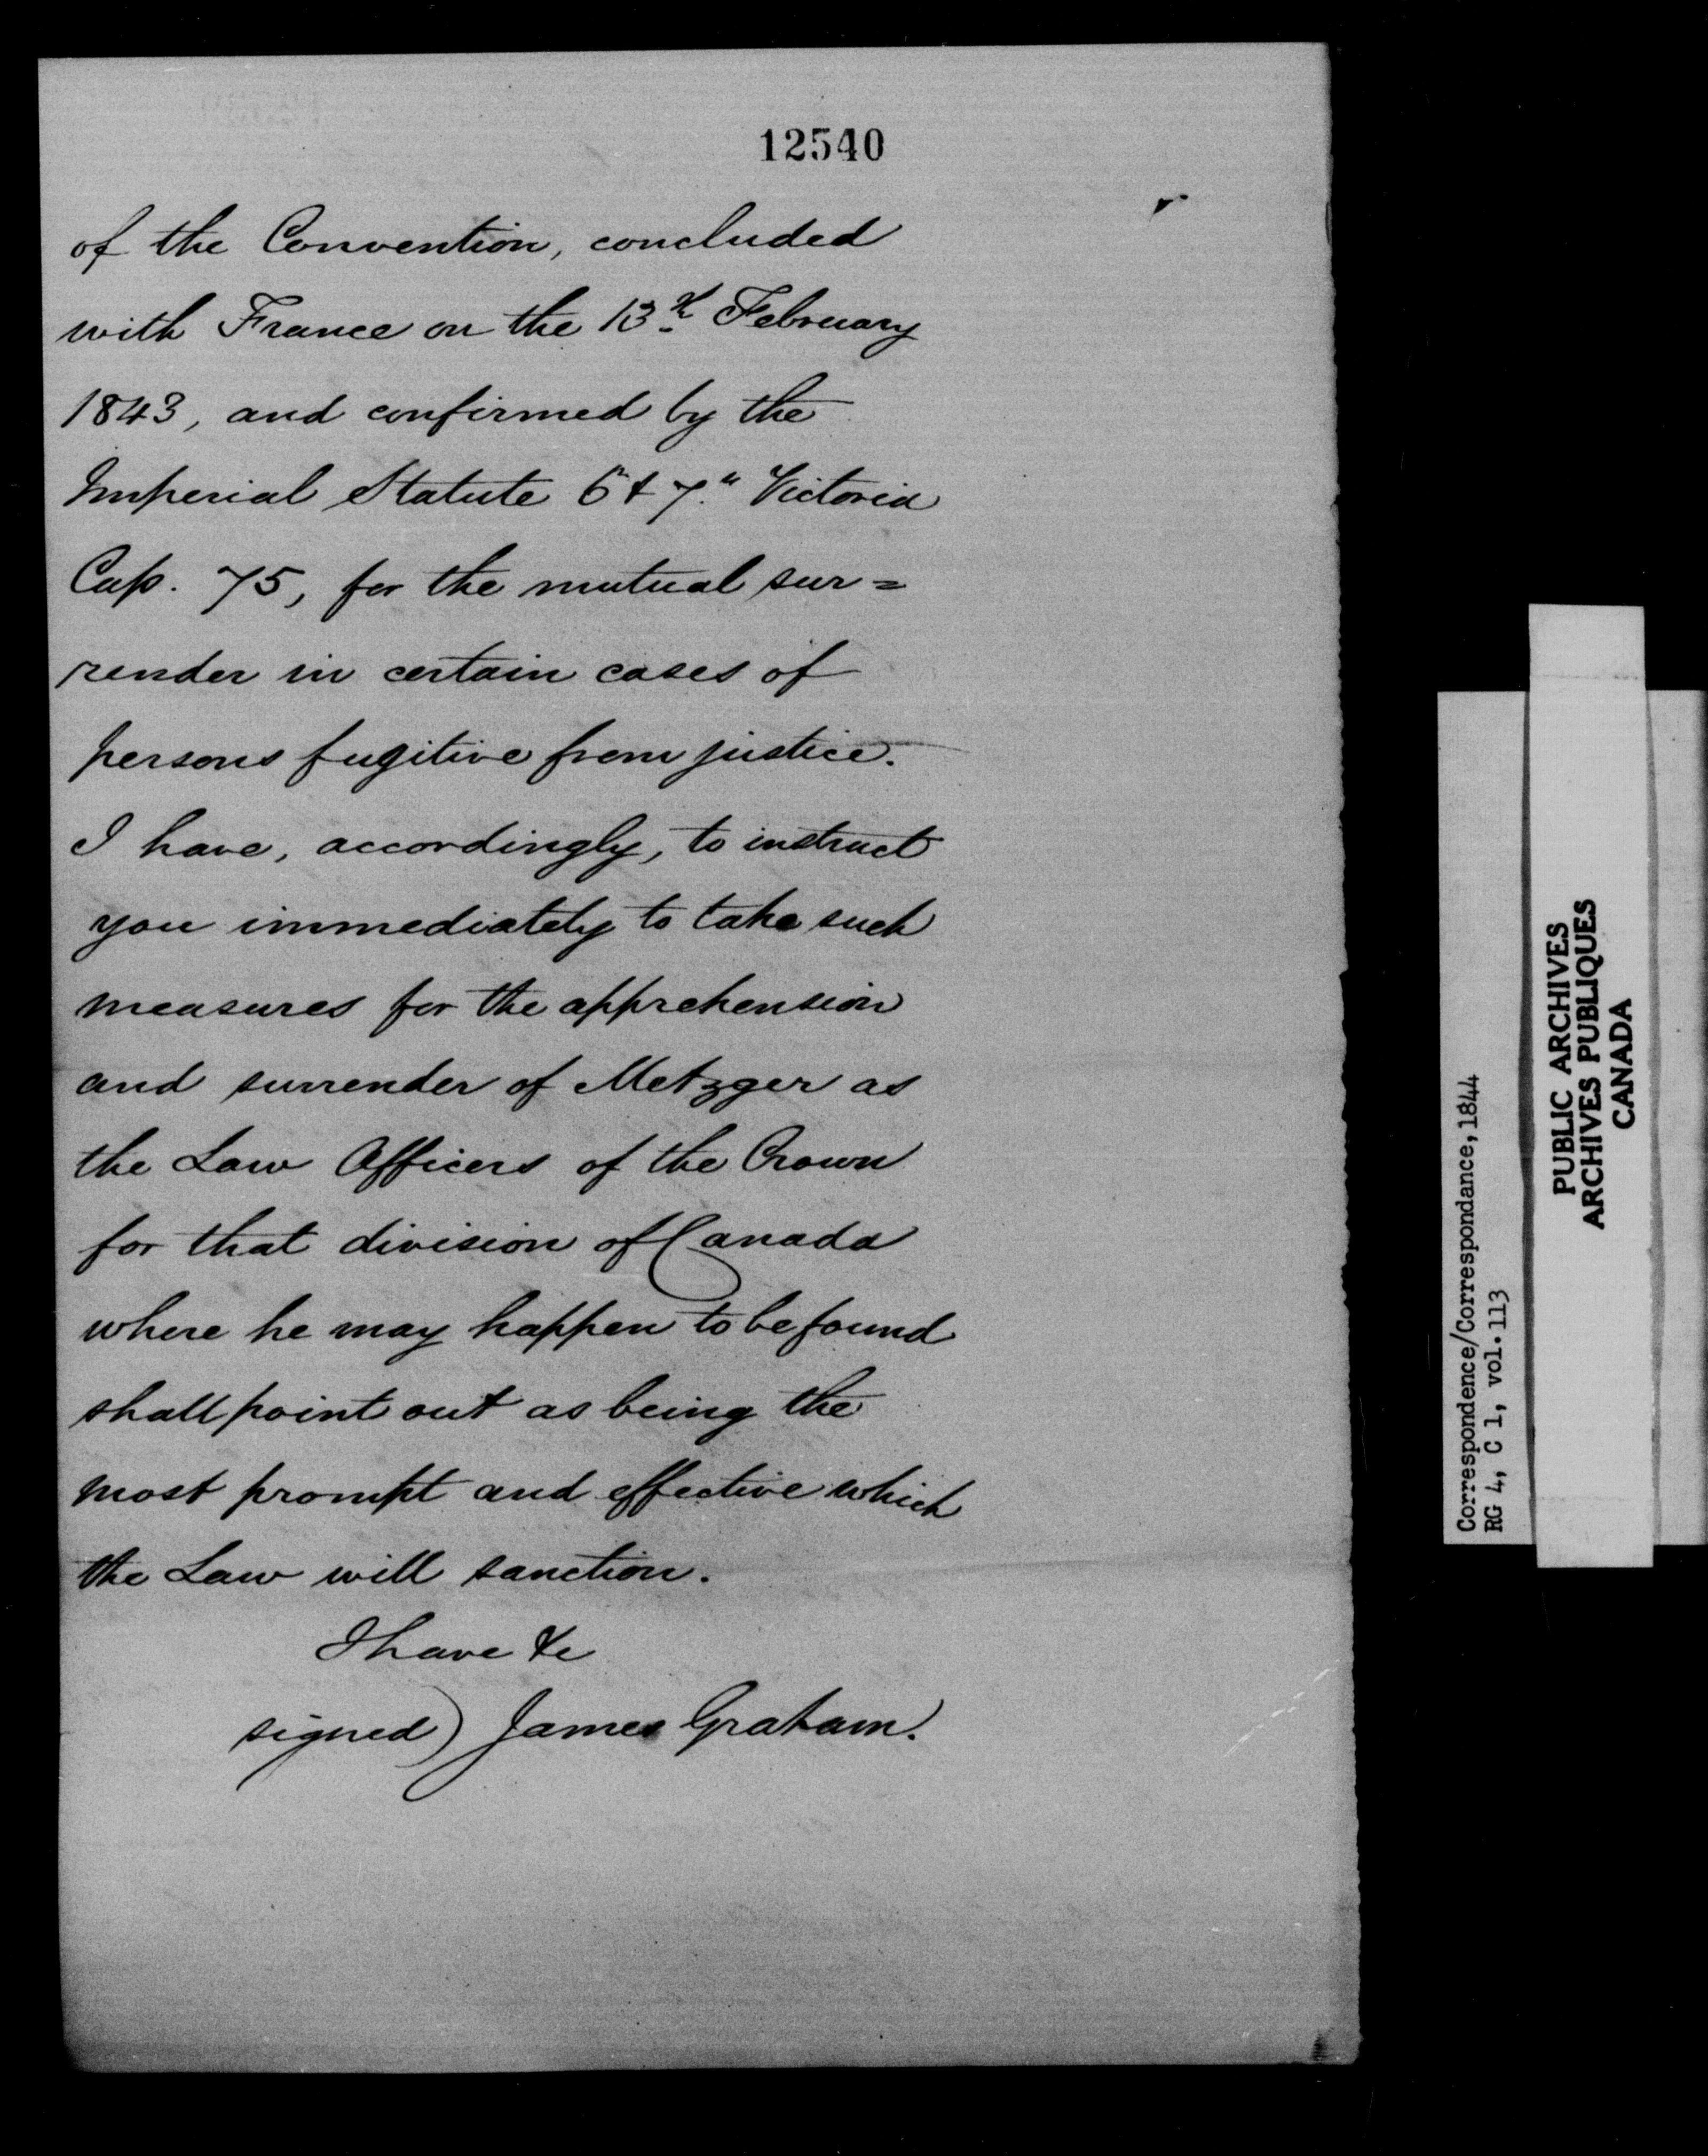 12540
of the Convention, concluded
with France on the 13th February
1843, and confirmed by the
Imperial Statute 6 & 7th Victoria
Cap. 75, for the mutual sur=
render in certain cases of
persons fugitive from justice.
I have, accordingly, to instruct
you immediately to take such
measures for the apprehension
and surrender of Metzger as
the Law Officers of the Crown
for that division of Canada
where he may happen to be found
shall point out as being the
most prompt and effective which
the Law will sanction.
I have &c
signed) James Graham.
Correspondence/Correspondance, 1844
RG 4, C 1, vol. 113
PUBLIC ARCHIVES
ARCHIVES PUBLIQUES
CANADA